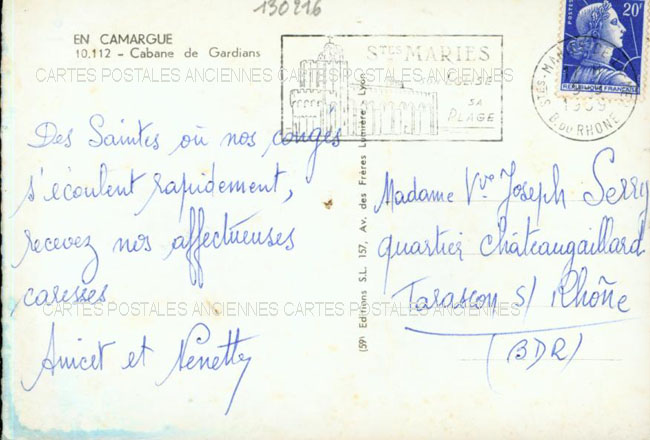 130216
EN CAMARGUE
10.112 - Cabane de Gardians
STES MARIES
SA
PLAGE
POSTES
20F
REPUBLIQUE FRANÇAISE
STES-MA
1959
B. DU RHONE
CARTES POSTALES ANCIENNES CARTES POSTALES ANCIENNES
Des Saintes où nos congés
s'écoulent rapidement,
recevez nos affectueuses
caresses
Anicet et Nenette
CARTES POSTALES ANCIENNES CARTES POSTALES ANCIENNES
(59) Editions S.L. 157, Av. des Frères Lumière - Lyon
Madame Vve Joseph Serry
quartier Châteaugaillard
Tarascon s/ Rhône
(BDR)